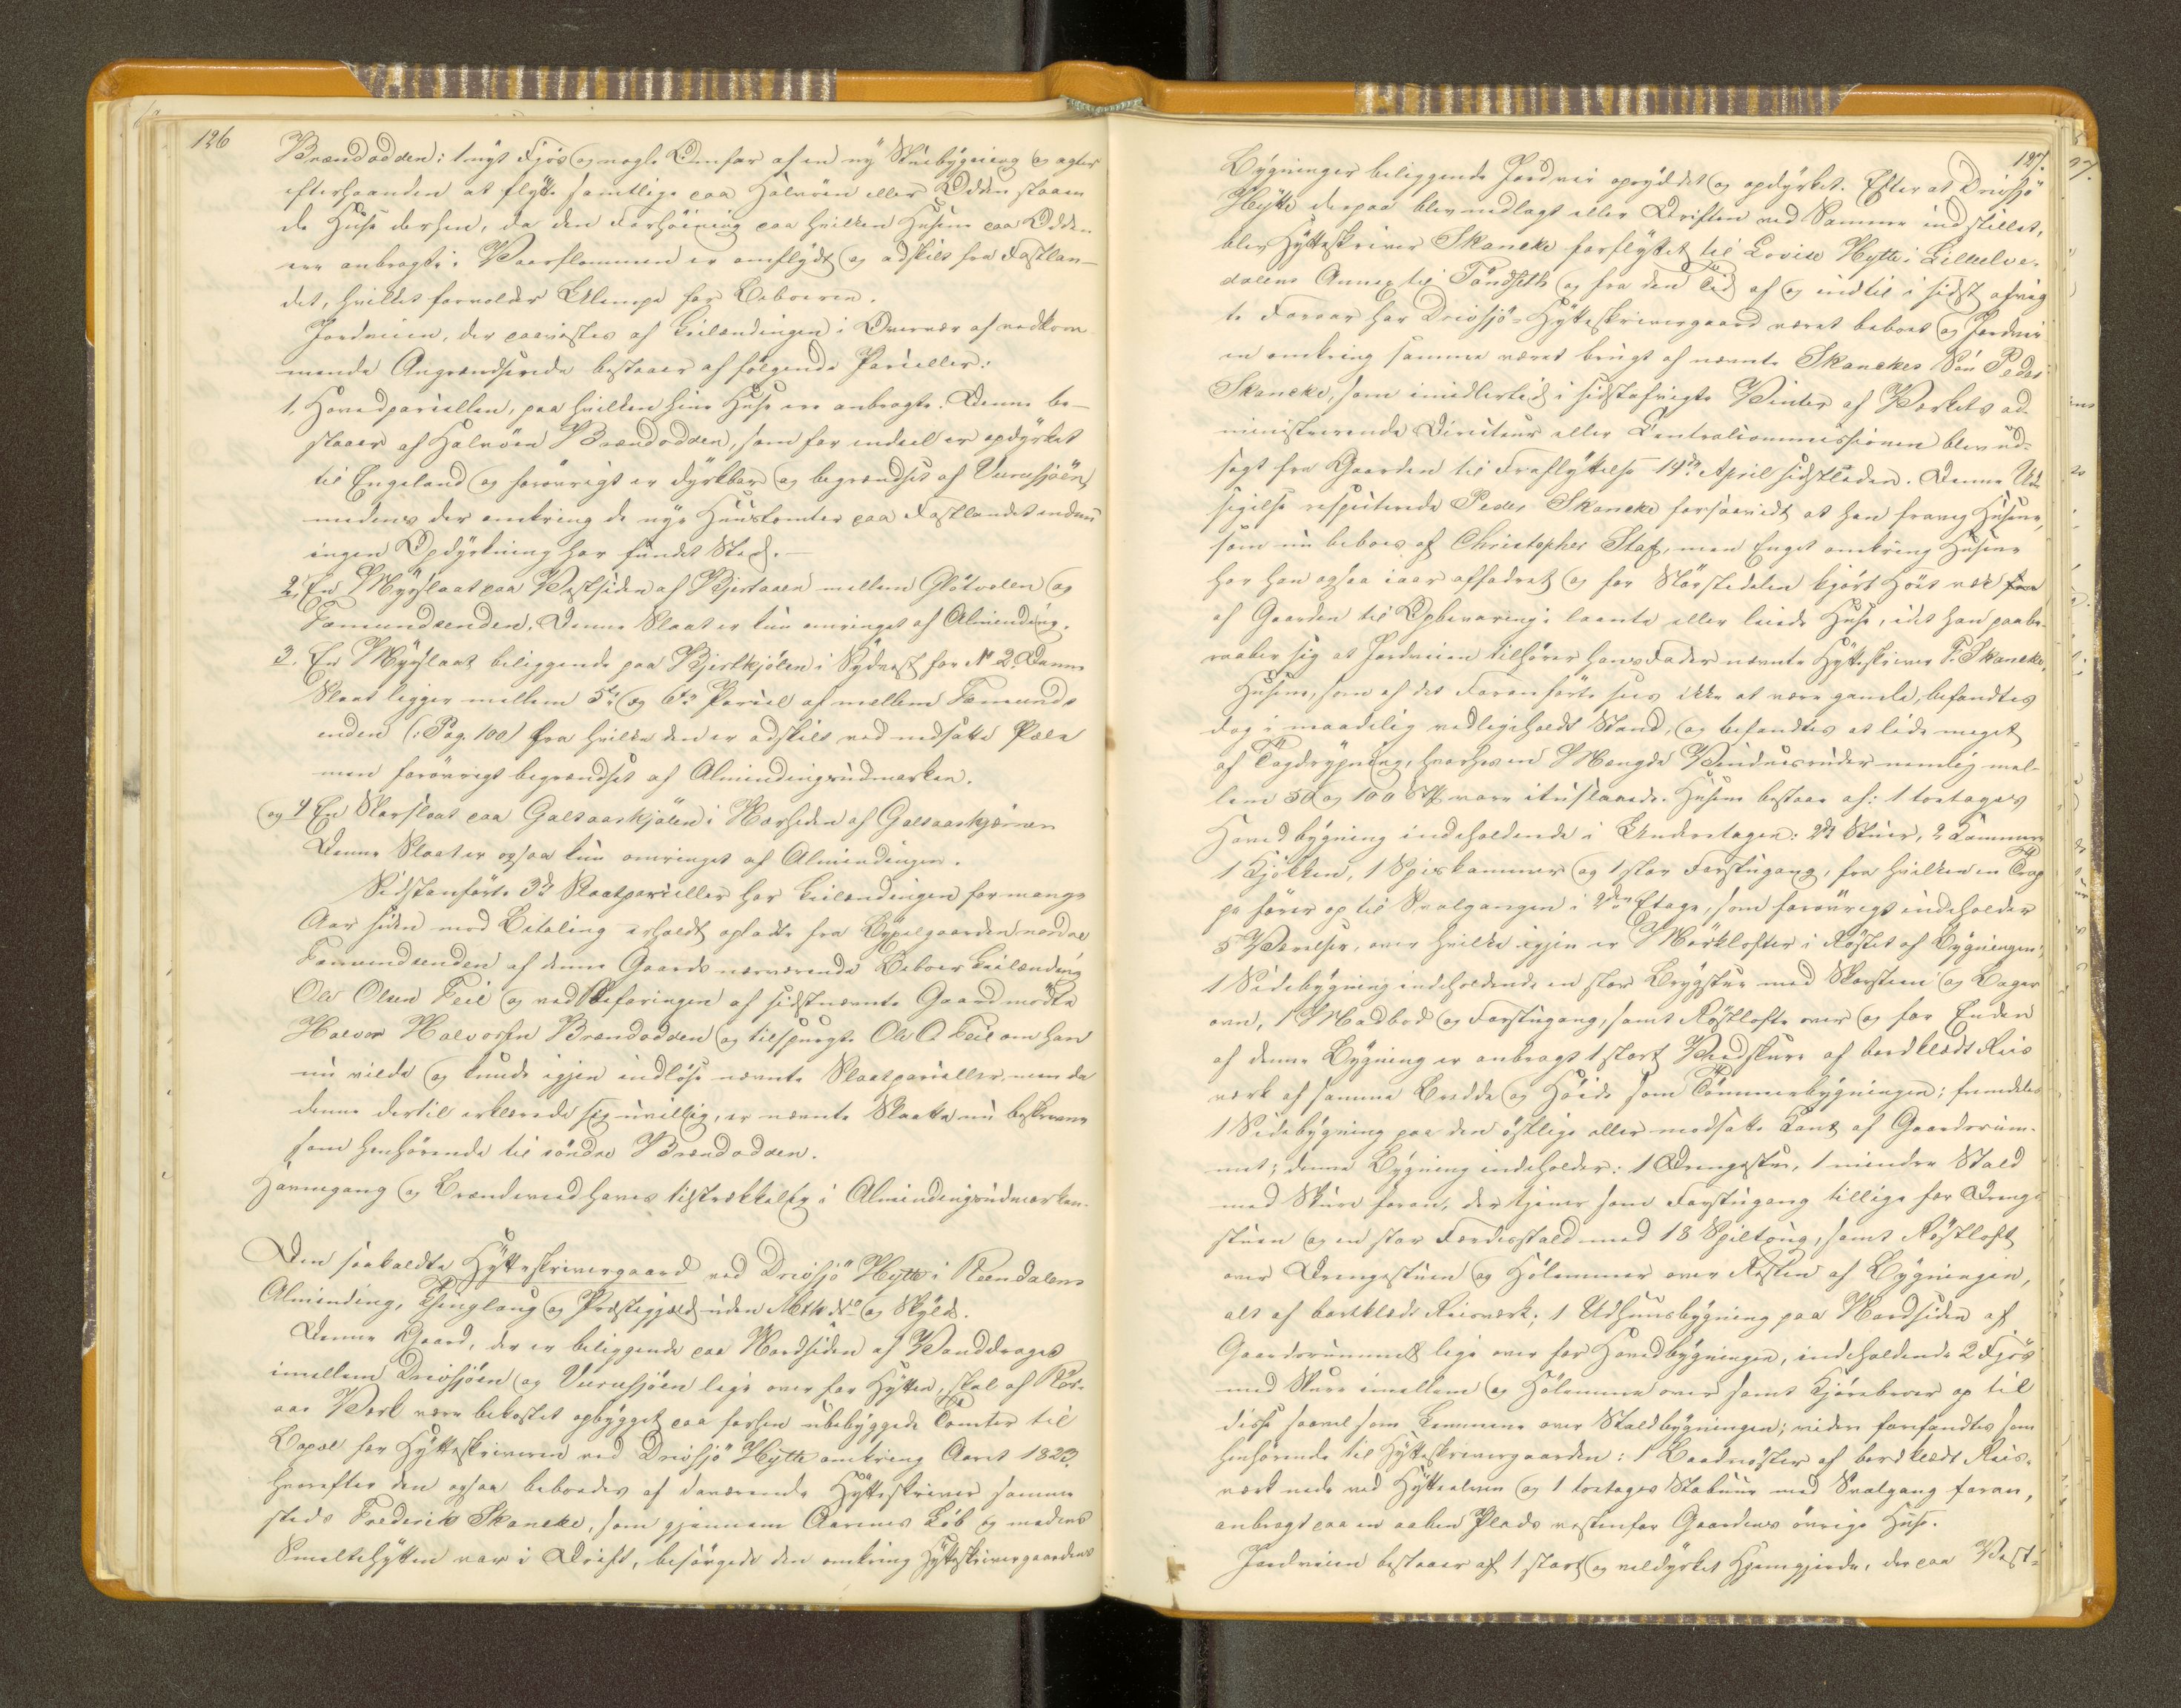 126
Brændodden: 1 nyt Fjös og nogle Omfar af en ny Stuebygning og agter
efterhaanden at flytte samtlige paa Halvöen eller Odden staaen
de Huse derhen, da den Forhöining paa hvilken Husene paa Odden
ere anbragte i Vaarflommen er omflydt og adskilt fra Fastlan-
det, hvilket forvolder Ulempe for Beboeren.
Jordveien, der paavistes af Leilændingen i Overvær af vedkom
mende Angrændserede bestaaer af fölgende Parceller:
1, Hovedparcellen, paa hvilken hine Huse ere anbragte. Denne be-
staaer af Halvöen Brændodden, som for endeel er opdyrket
til Engeland og forövrigt er dyrkbar og begrændset af Vurrusjöen,
medens der omkring de nye Huustomter paa Fastlandet endnu
ingen Opdyrkning har fundet Sted.-
2, En Myrslaat paa Vestsiden af Bjertaaen mellem Glötvolen og
Fæmundsenden. Denne Slaat er kun omringet af Alminding.
3. En Myrslaat beliggende paa Bjertkjölen i Sydvest for No 2. Denne
Slaat ligger mellem 5te og 6te Parcel af mellem Fæmunds
enden (: Pag. 100) fra hvilke den er adskilt ved nedsatte Pæle
men forövrigt begrændset af Almindingsudmarken.
og 4 En Starslaat paa Galtaaskjölen i Nærheden af Galtaaskjærnen
Denne Slaat er ogsaa kun omringet af Almindingen.
Sidstanförte 3de Slaatparceller har Leilændingen for mange
Aar siden mod Betaling erholdt opladte fra Bygselgaarden nordre
Fæmundsenden af denne Gaards nærværende Beboer Leilænding
Ole Olsen Feil og ved Befaringen af sidstnævnte Gaard mödte
Halvor Halvorsen Brændodden og tilspurgte Ole O. Feil om han
nu vilde og kunde igjen indlöse nævnte Slaatparceller, men da
denne dertil erklærede sig uvillig, er nævnte Slaatte nu beskrevne
som henhörende til söndre Brændodden.
Havnegang og Brændeved haves tilstrækkelig i Almindingsudmarken.
Den saakaldte Hytteskrivergaard ved Drevsjö Hytte i Rendalens
Alminding, Thinglaug og Præstegjæld uden Mtk No og Skyld.
Denne Gaard, der er beliggende paa Nordsiden af Vanddraget
imellem Drevsjöen og Vurrusjöen lige over for Hytten, skal af Rör-
aas Værk være bekostet opbygget paa forhen ubebyggede Tomter til
Bopæl for Hytteskriveren ved Drevsjö Hytte omkring Aaret 1823.
hvorefter den ogsaa beboedes af daværende Hytteskriver samme
steds Frederik Skancke, som gjennem Aarenes Löb og medens
Smeltehytten var i Drift, besörgede den omkring Hytteskrivergaardens
127.
Bygninger beliggende Jordvei opryddet og opdyrket. Efter at Drevsjö
Hytte derpaa blev nedlagt eller Driften ved Samme indstillet,
blev Hytteskriver Skancke forflyttet til Lovise Hytte i Lilleelve-
dalens Annex til Töndseth og fra den Tid af og indtil i sidst afvig
te Foraar har Drevsjö-Hytteskrivergaard været beboet og Jordvei
en omkring samme været brugt af nævnte Skanckes Sön Peder
Skancke, som imidlertid i sidstafvigte Vinter af Værkets ad-
ministrerende Directeur eller Centralcommissionen blev ud-
sagt fra Gaarden til Fraflyttelse 14de April sidstleden. Denne Ud-
sigelse respecterede Peder Skancke forsaavidt at han fraveg Husene,
som nu beboes af Christopher Staf, men Enget omkring Husene
har han ogsaa iaar affodret og for Störstedelen kjört Höet væk
af Gaarden til Opbevaring i laante eller leiede Huse, idet han paabe-
raaber sig at Jordveien tilhörer hans Fader nævnte Hytteskriver F. Skancke.
Husene, som af det Foranförte sees ikke at være gamle, befandtes
dog i maadelig vedligeholdt Stand, og befandtes at lide meget
af Tagdrypning, hvorhos en Mængde Vinduesruder nemlig mel-
lem 50 og 100 Stk vare itu slaaede. Husene bestaae af: 1 toetages
Hovedbygning indeholdende i Underetagen: 2de Stuer, 2 Kammere
1 Kjökken, 1 Spiskammer og 1 stor Forstugang, fra hvilken en Trap
pe förer op til Svalgangen i 2den Etage, som forövrigt indeholder
5 Værelser, over hvilke igjen er Mörklofter i Röstet af Bygningen;
1 Sidebygning indeholdende en stor Brygstue med Skorsteen og Bager
ovn, 1 Madbod og Forstugang, samt Röstlofte over og for Enden
af denne Bygning er anbragt 1 stort Vedskuur af bordklædt Reis
værk af samme Bredde og Höide som Tömmerbygningen; fremdeles
1 Sidebygning paa den östlige eller modsatte Kant af Gaardsrum-
met; denne Bygning indeholder: 1 Drengestue, 1 mindre Stald
med Skure foran, der tjener som Forstugang tillige for Drenge
stuen og en stor Færdesstald med 18 Spiltoug, samt Röstloft
over Drengestuen og Hölemmer over Resten af Bygningen,
alt af bordklædt Reisværk; 1 Udhuusbygning paa Nordsiden af
Gaardsrummet lige over for Hovedbygningen, indeholdende 2 Fjös
med Skure imellem og Hölemme over samt Kjörebroer op til
disse saavel som Lemmene over Staldbygningen; videre forefandtes som
henhörende til Hytteskrivergaarden: 1 Baadnöster af bordklædt Reis-
værk nede ved Hytteelven og 1 toetages Stabuur med Svalgang foran,
anbragt paa en aaben Plads vestenfor Gaardens övrige Huse.
Jordveien bestaaer af 1 stort og veldyrket Hjemgjerde, der paa Vest-